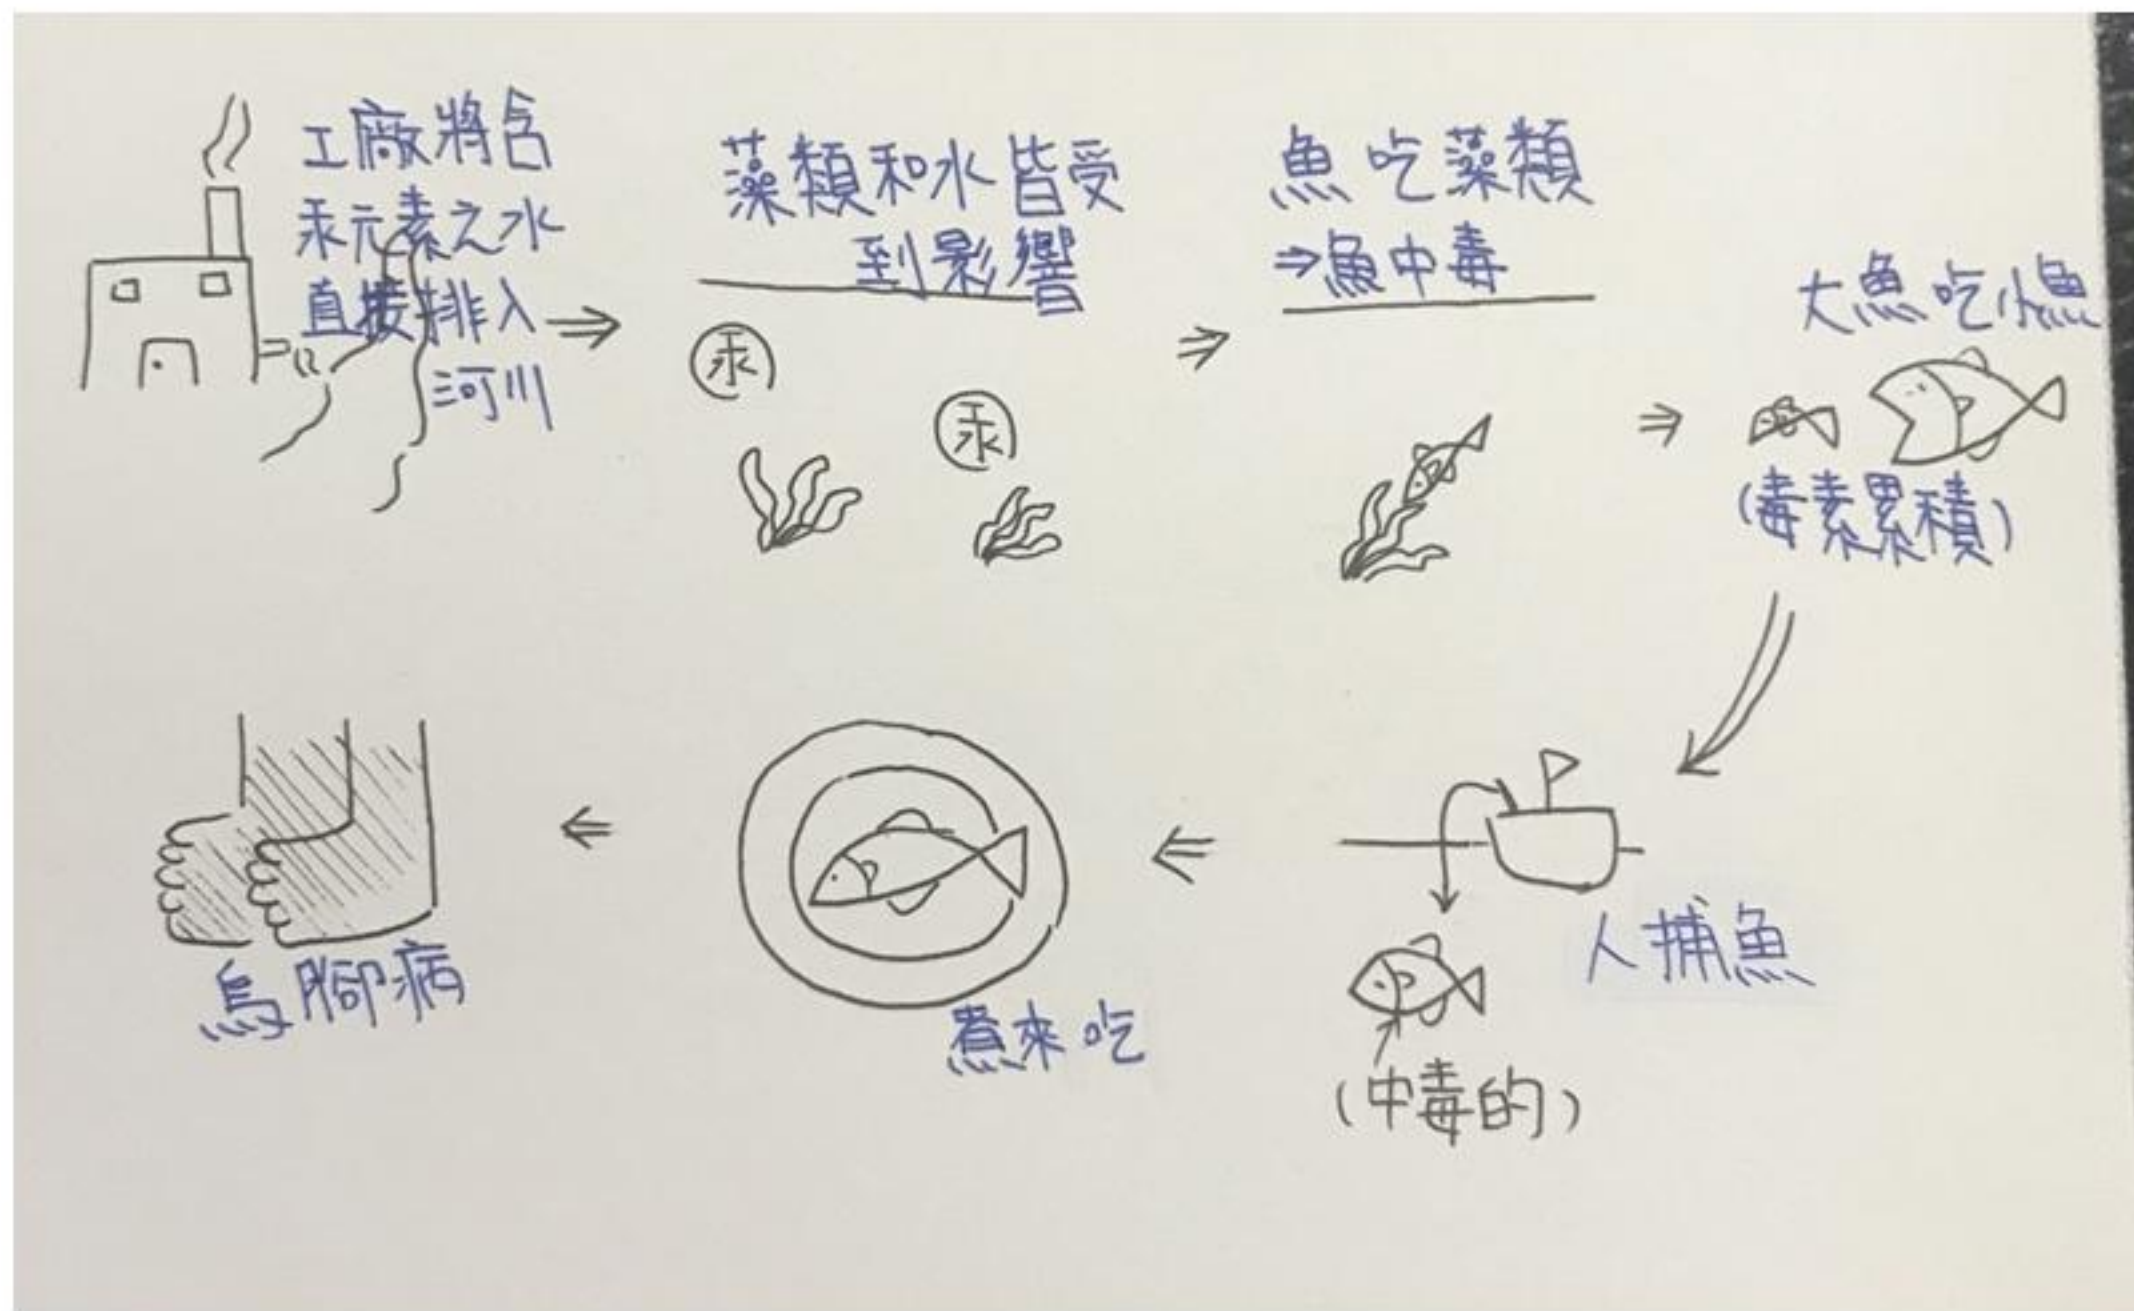 工廠將含
汞元素之水
直接排入
河川
藻類和水皆受
到影響
汞
汞
魚吃藻類
⇒魚中毒
大魚吃小魚
(毒素累積)
人捕魚
(中毒的)
煮來吃
烏腳病